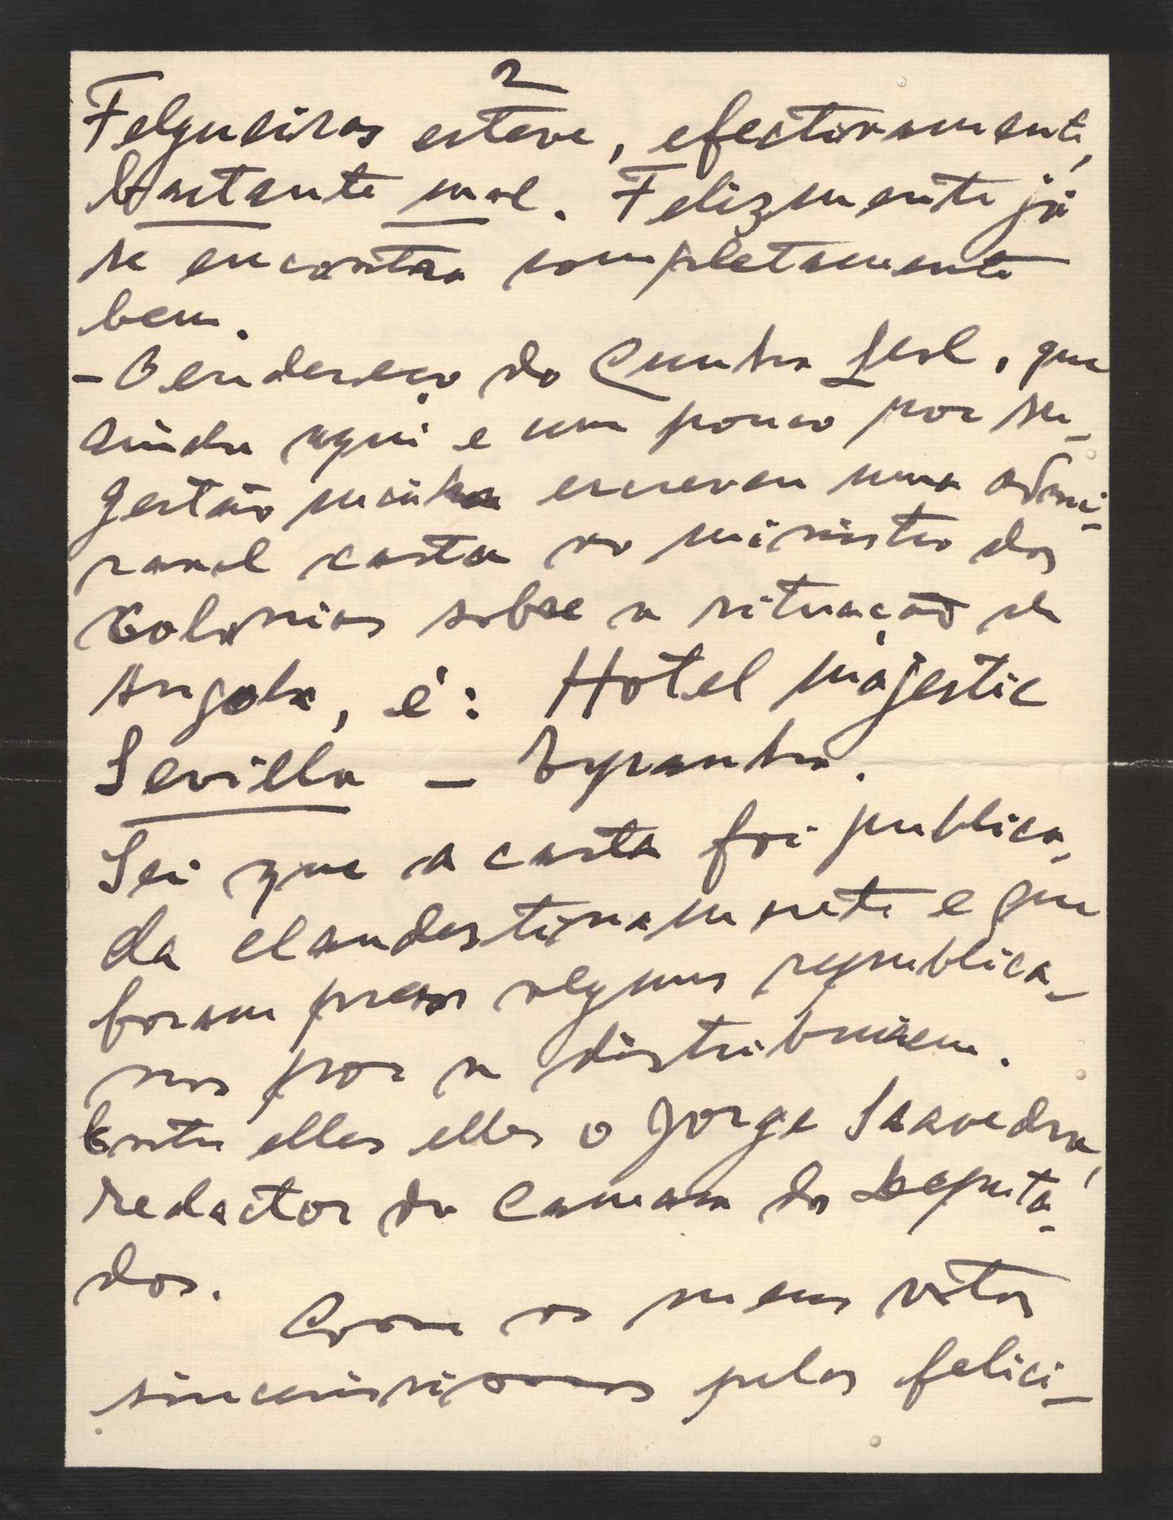 2
Felgueiras esteve, efectivamente,
bastante mal. Felizmente já
se encontra completamente
bem.
– O endereço do Cunha Leal, que
ainda aqui e um pouco por su-
gestão minha escreveu uma admi-
ravel carta ao ministro das
Colonias sobre a situação de
Angola, é: Hotel Majestic
Sevilla – Espanha.
Sei que a carta foi publica-
da clandestinamente e que
foram presos alguns republica-
nos por a distribuirem.
Entre elles elles o Jorge Saavedra,
redactor da Camara dos Deputa-
dos.
Com os meus votos
sincerissimos pelas felici-